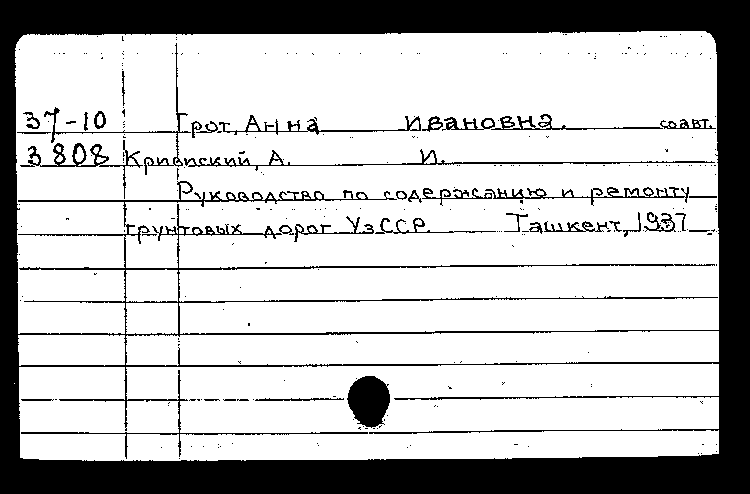 37-10 Грот, Анна Ивановна. соавт.
3808 Кривпский, А. И.
Руководство по содержанию и ремонту
грунтовых дорог УзССР. Ташкент, 1937.